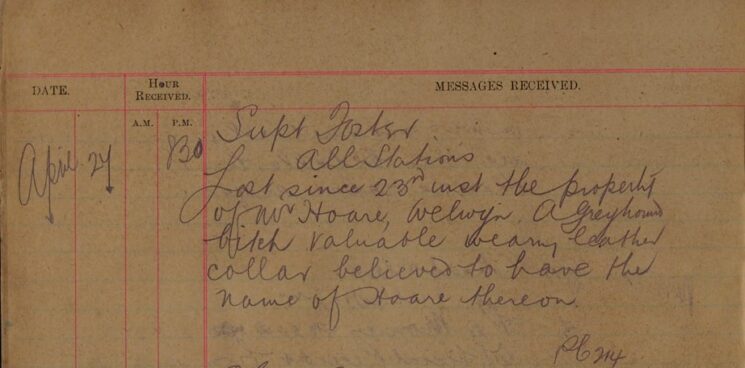 DATE.
HOUR RECEIVED.
MESSAGES RECEIVED.
A.M. P.M.
April 24 830 Supt Foster
All Stations
Lost since 23rd inst the property
of Mr Hoare, Welwyn. A Greyhound
bitch valuable wearing leather
collar believed to have the
name of Hoare thereon.
PC 214